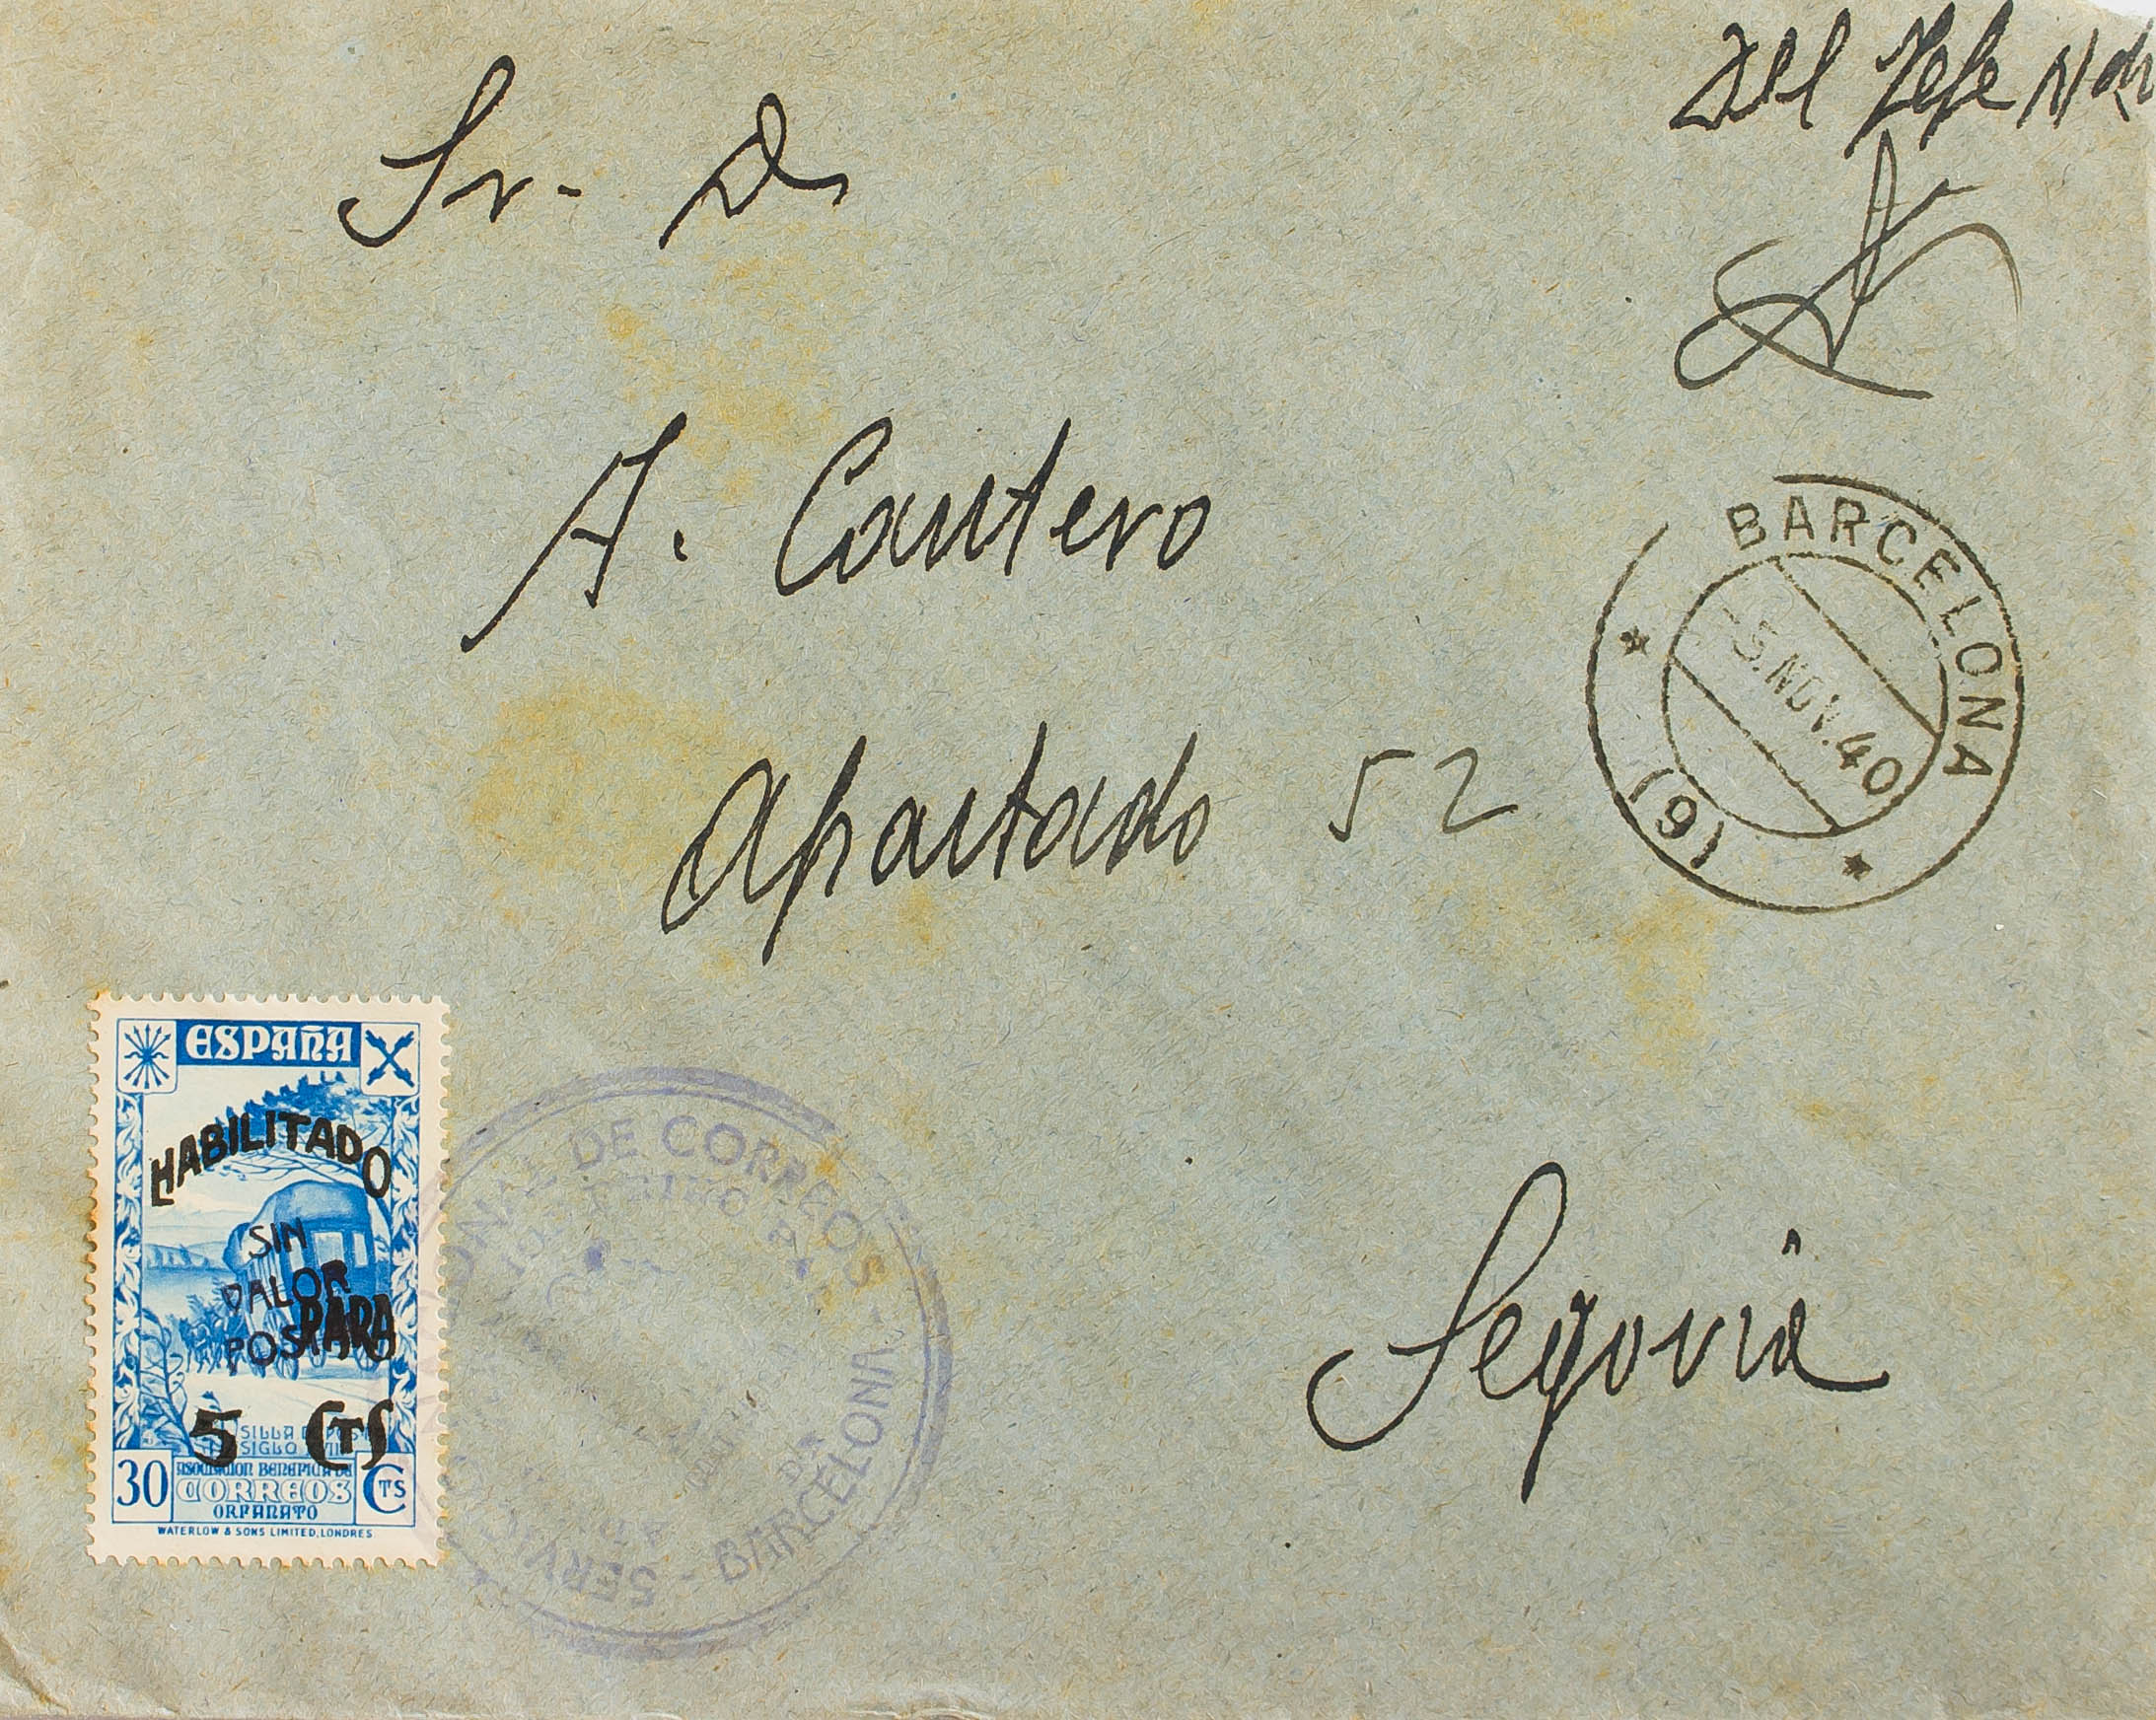 Del Jefe
Sr. D.
A. Cantero
Apartado 52
Segovia
BARCELONA
5.NOV.40
(9)
ESPAÑA
HABILITADO
SIN
VALOR
POSTAL
PARA
5 CTS
SILLA DE POSTA
SIGLO XVIII
30 CTS
ASOCIACION BENEFICA DE
CORREOS
ORFANATO
WATERLOW & SONS LIMITED, LONDRES
DE CORREOS
BARCELONA